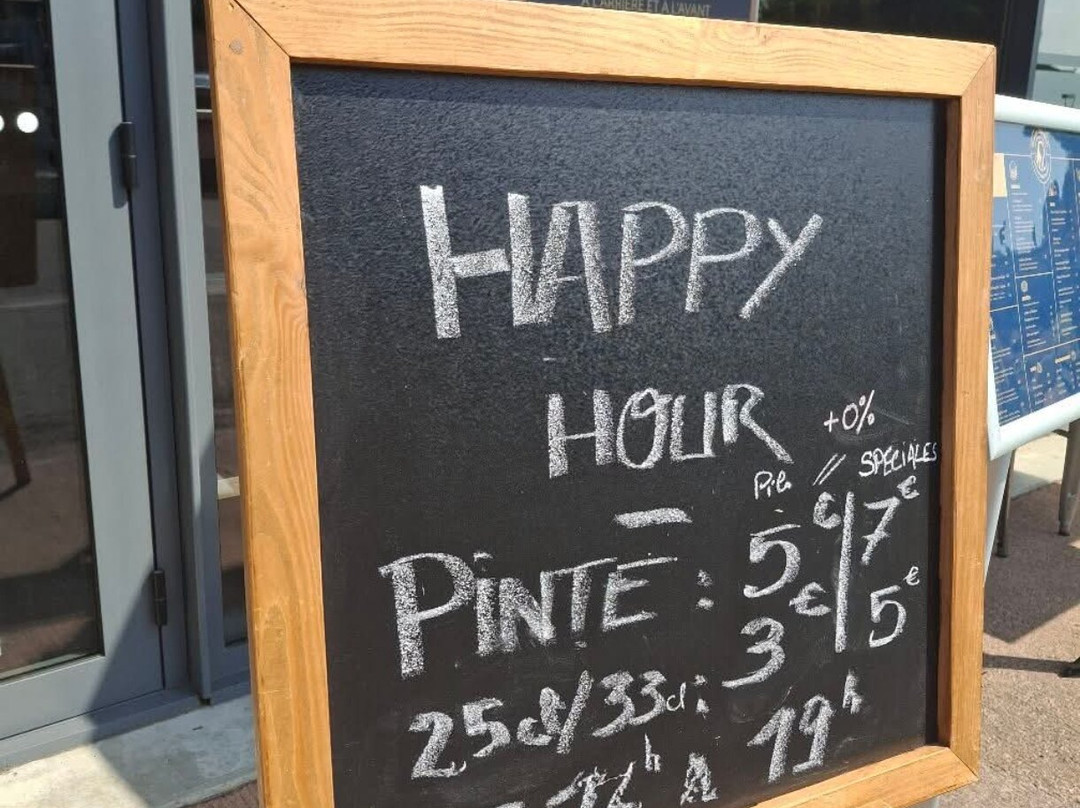 À L'ARRIÈRE ET À L'AVANT
HAPPY
HOUR
+0%
Pils // SPECIALES
PINTE : 5€ / 7€
25cl/33cl : 3€ / 5€
h À 19h